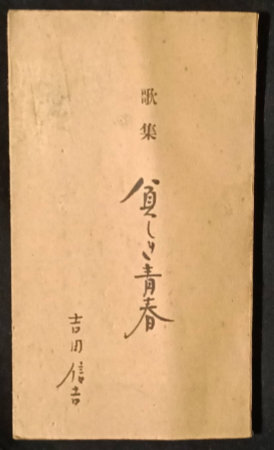 歌集
貧しき青春
吉田信吉